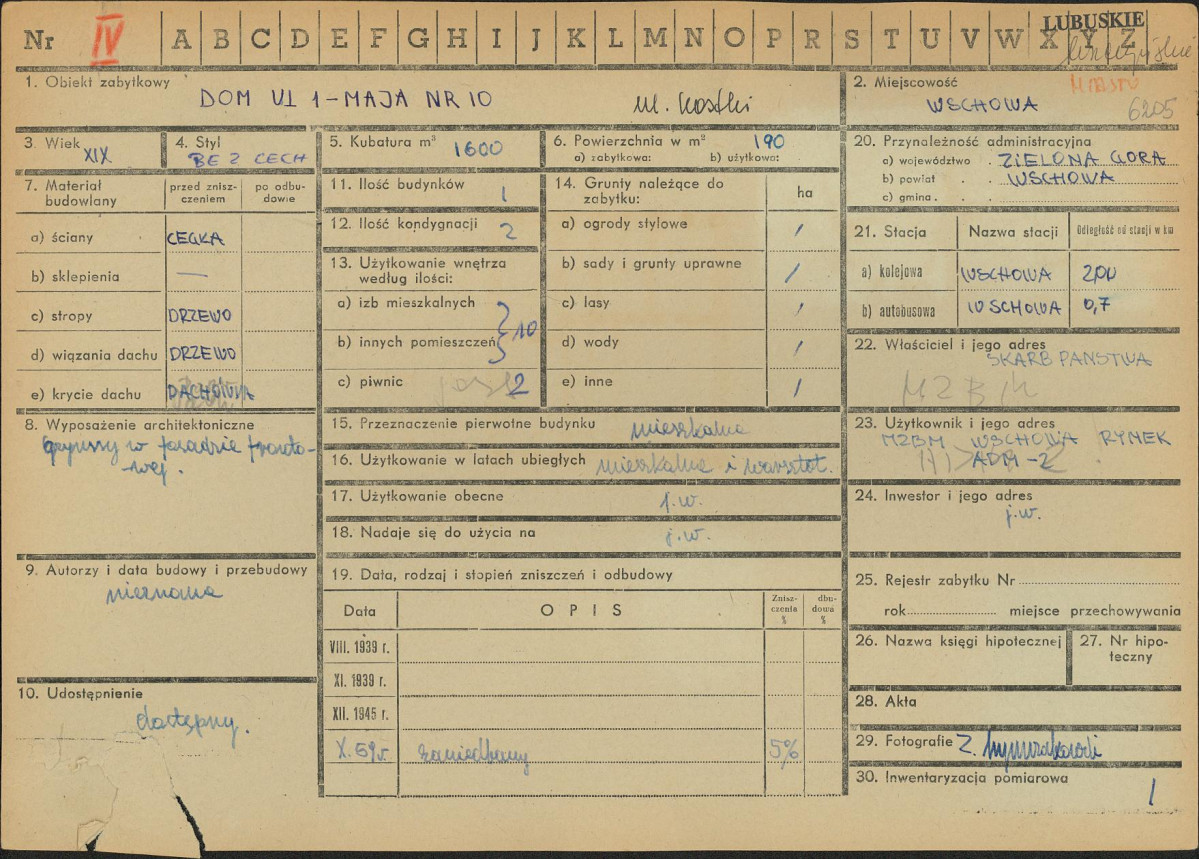 Nr IV A B C D E F G H I J K L M N O P R S T U V W X Y Z
LUBUSKIE
1. Obiekt zabytkowy
DOM UL 1-MAJA NR 10 ul. Kostki
2. Miejscowość
MIASTO
WSCHOWA 6205
3. Wiek
XIX
4. Styl
BEZ CECH
5. Kubatura m³ 1600
6. Powierzchnia w m² 190
a) zabytkowa: b) użytkowa:
20. Przynależność administracyjna
a) województwo . ZIELONA GORA
b) powiat . . WSCHOWA
c) gmina . .
7. Materiał budowlany
przed zniszczeniem
po odbudowie
a) ściany CEGŁA
b) sklepienia —
c) stropy DRZEWO
d) wiązania dachu DRZEWO
e) krycie dachu DACHÓWKA
11. Ilość budynków 1
12. Ilość kondygnacji 2
13. Użytkowanie wnętrza
według ilości:
a) izb mieszkalnych
b) innych pomieszczeń } 10
c) piwnic jest 2
14. Grunty należące do
zabytku: ha
a) ogrody stylowe /
b) sady i grunty uprawne /
c) lasy /
d) wody /
e) inne /
21. Stacja Nazwa stacji Odległość od stacji w km
a) kolejowa WSCHOWA 2,00
b) autobusowa WSCHOWA 0,7
22. Właściciel i jego adres
SKARB PAŃSTWA
MZBM
8. Wyposażenie architektoniczne
gzymsy w fasadzie fronto-
wej.
15. Przeznaczenie pierwotne budynku mieszkalne
16. Użytkowanie w latach ubiegłych mieszkalne i warsztat.
17. Użytkowanie obecne j.w.
18. Nadaje się do użycia na j.w.
23. Użytkownik i jego adres
MZBM WSCHOWA RYNEK
ADM-2
24. Inwestor i jego adres
j.w.
9. Autorzy i data budowy i przebudowy
nieznana
10. Udostępnienie
dostępny.
19. Data, rodzaj i stopień zniszczeń i odbudowy
Data OPIS Zniszczenia % dbudowń %
VIII. 1939 r.
XI. 1939 r.
XII. 1945 r.
X. 59 r. zaniedbany 5%
25. Rejestr zabytku Nr
rok miejsce przechowywania
26. Nazwa księgi hipotecznej
27. Nr hipoteczny
28. Akta
29. Fotografie Z.
30. Inwentaryzacja pomiarowa
/